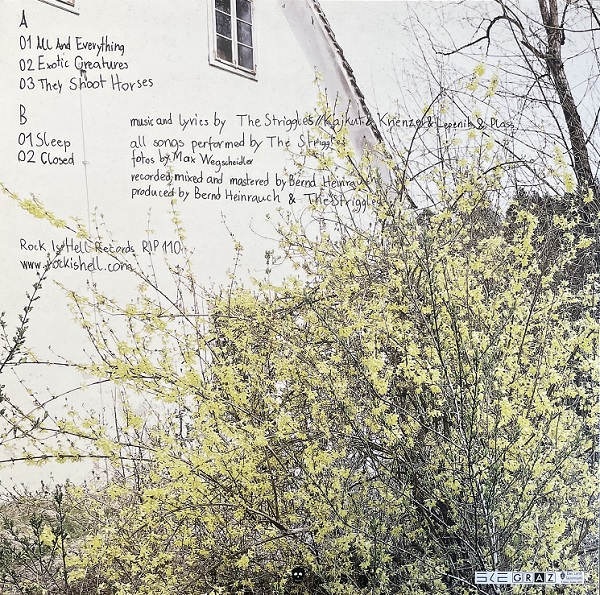 A
01 All And Everything
02 Exotic Creatures
03 They Shoot Horses
B
01 Sleep
02 Closed
music and lyrics by The Striggles // Kajkut & Krienzer & Lepenik & Plass
all songs performed by The Striggles
fotos by Max Wegscheidler
recorded, mixed and mastered by Bernd Heinrauch
produced by Bernd Heinrauch & The Striggles
Rock Is Hell Records RIP 110
www.rockishell.com
GRAZ